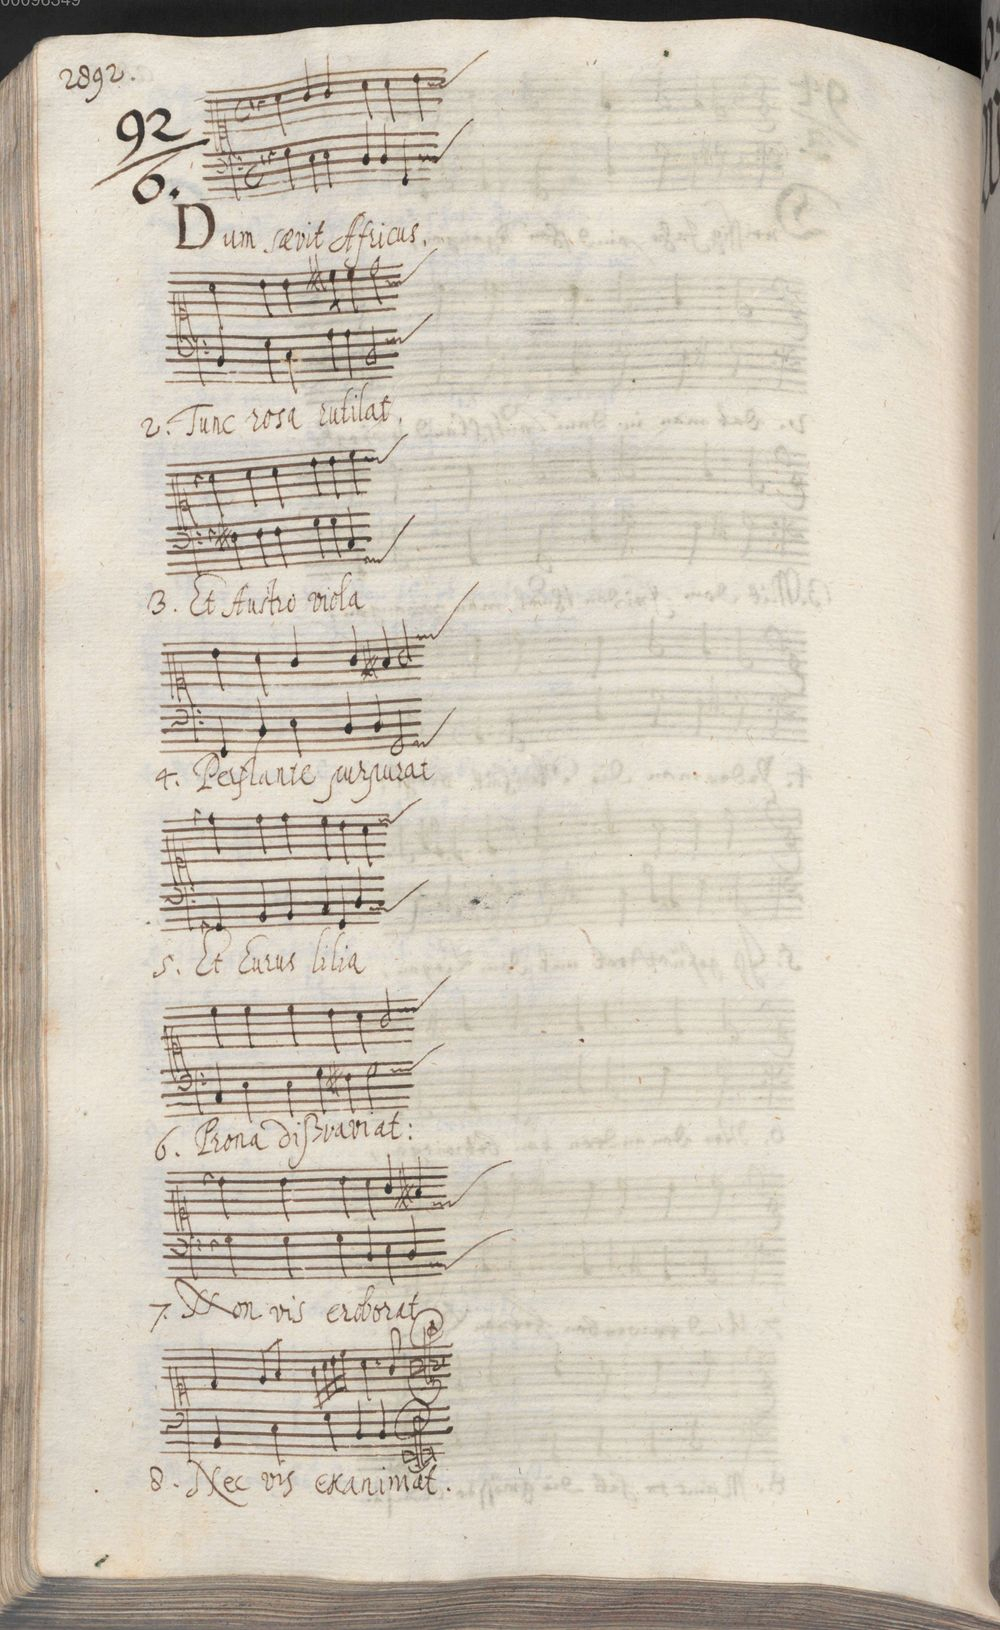 00096349
2892.
92
6.
Dum sævit Africus.
2. Tunc rosa rutilat.
3. Et Austro viola
4. Perflante purpurat
5. Et Eurus lilia
6. Prona
7. Non vis eroborat
8. Nec vis exanimat.